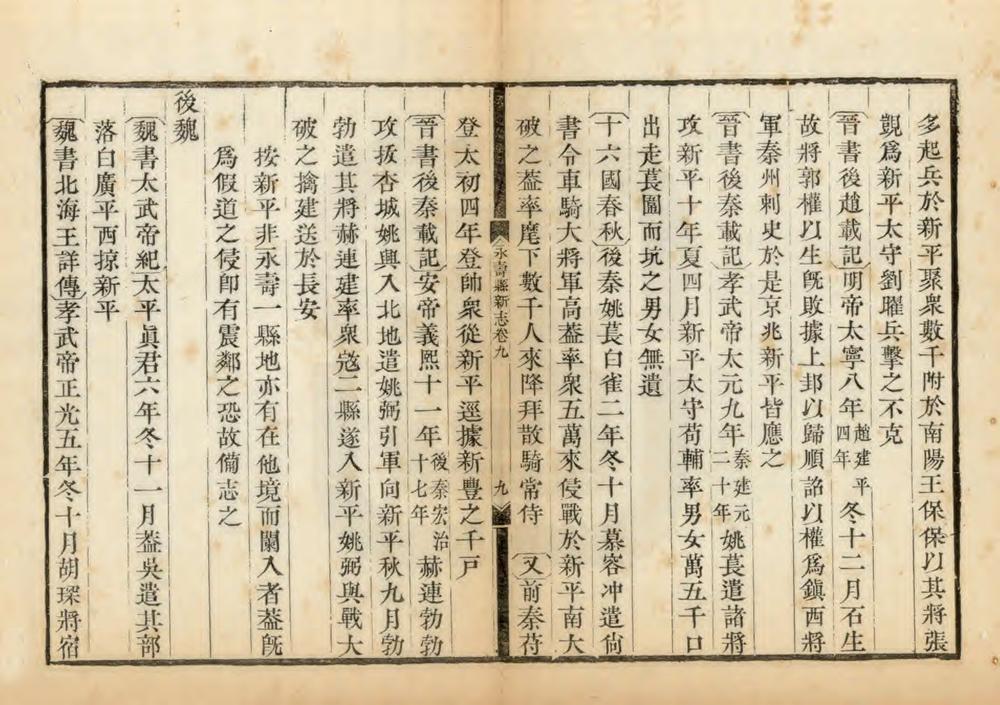 多起兵於新平聚衆數千附於南陽王保保以其將張
覬爲新平太守劉曜兵擊之不克
晉書後趙載記明帝太寧八年趙建平四年冬十二月石生
故將郭權以生旣敗據上邽以歸順詔以權爲鎭西將
軍秦州刺史於是京兆新平皆應之
晉書後秦載記孝武帝太元九年秦建元二十年姚萇遣諸將
攻新平十年夏四月新平太守苟輔率男女萬五千口
出走萇圍而坑之男女無遺
十六國春秋後秦姚萇白雀二年冬十月慕容冲遣尙
書令車騎大將軍高蓋率衆五萬來侵戰於新平南大
破之蓋率麾下數千人來降拜散騎常侍 又前秦苻
永壽縣新志卷九 九
登太初四年登帥衆從新平逕據新豐之千戶
晉書後秦載記安帝義熙十一年後秦宏治十七年赫連勃勃
攻拔杏城姚興入北地遣姚弼引軍向新平秋九月勃
勃遣其將赫連建率衆寇二縣遂入新平姚弼與戰大
破之擒建送於長安
按新平非永壽一縣地亦有在他境而闌入者蓋旣
爲假道之侵卽有震鄰之恐故備志之
後魏
魏書太武帝紀太平眞君六年冬十一月蓋吳遣其部
落白廣平西掠新平
魏書北海王詳傳孝武帝正光五年冬十月胡琛將宿